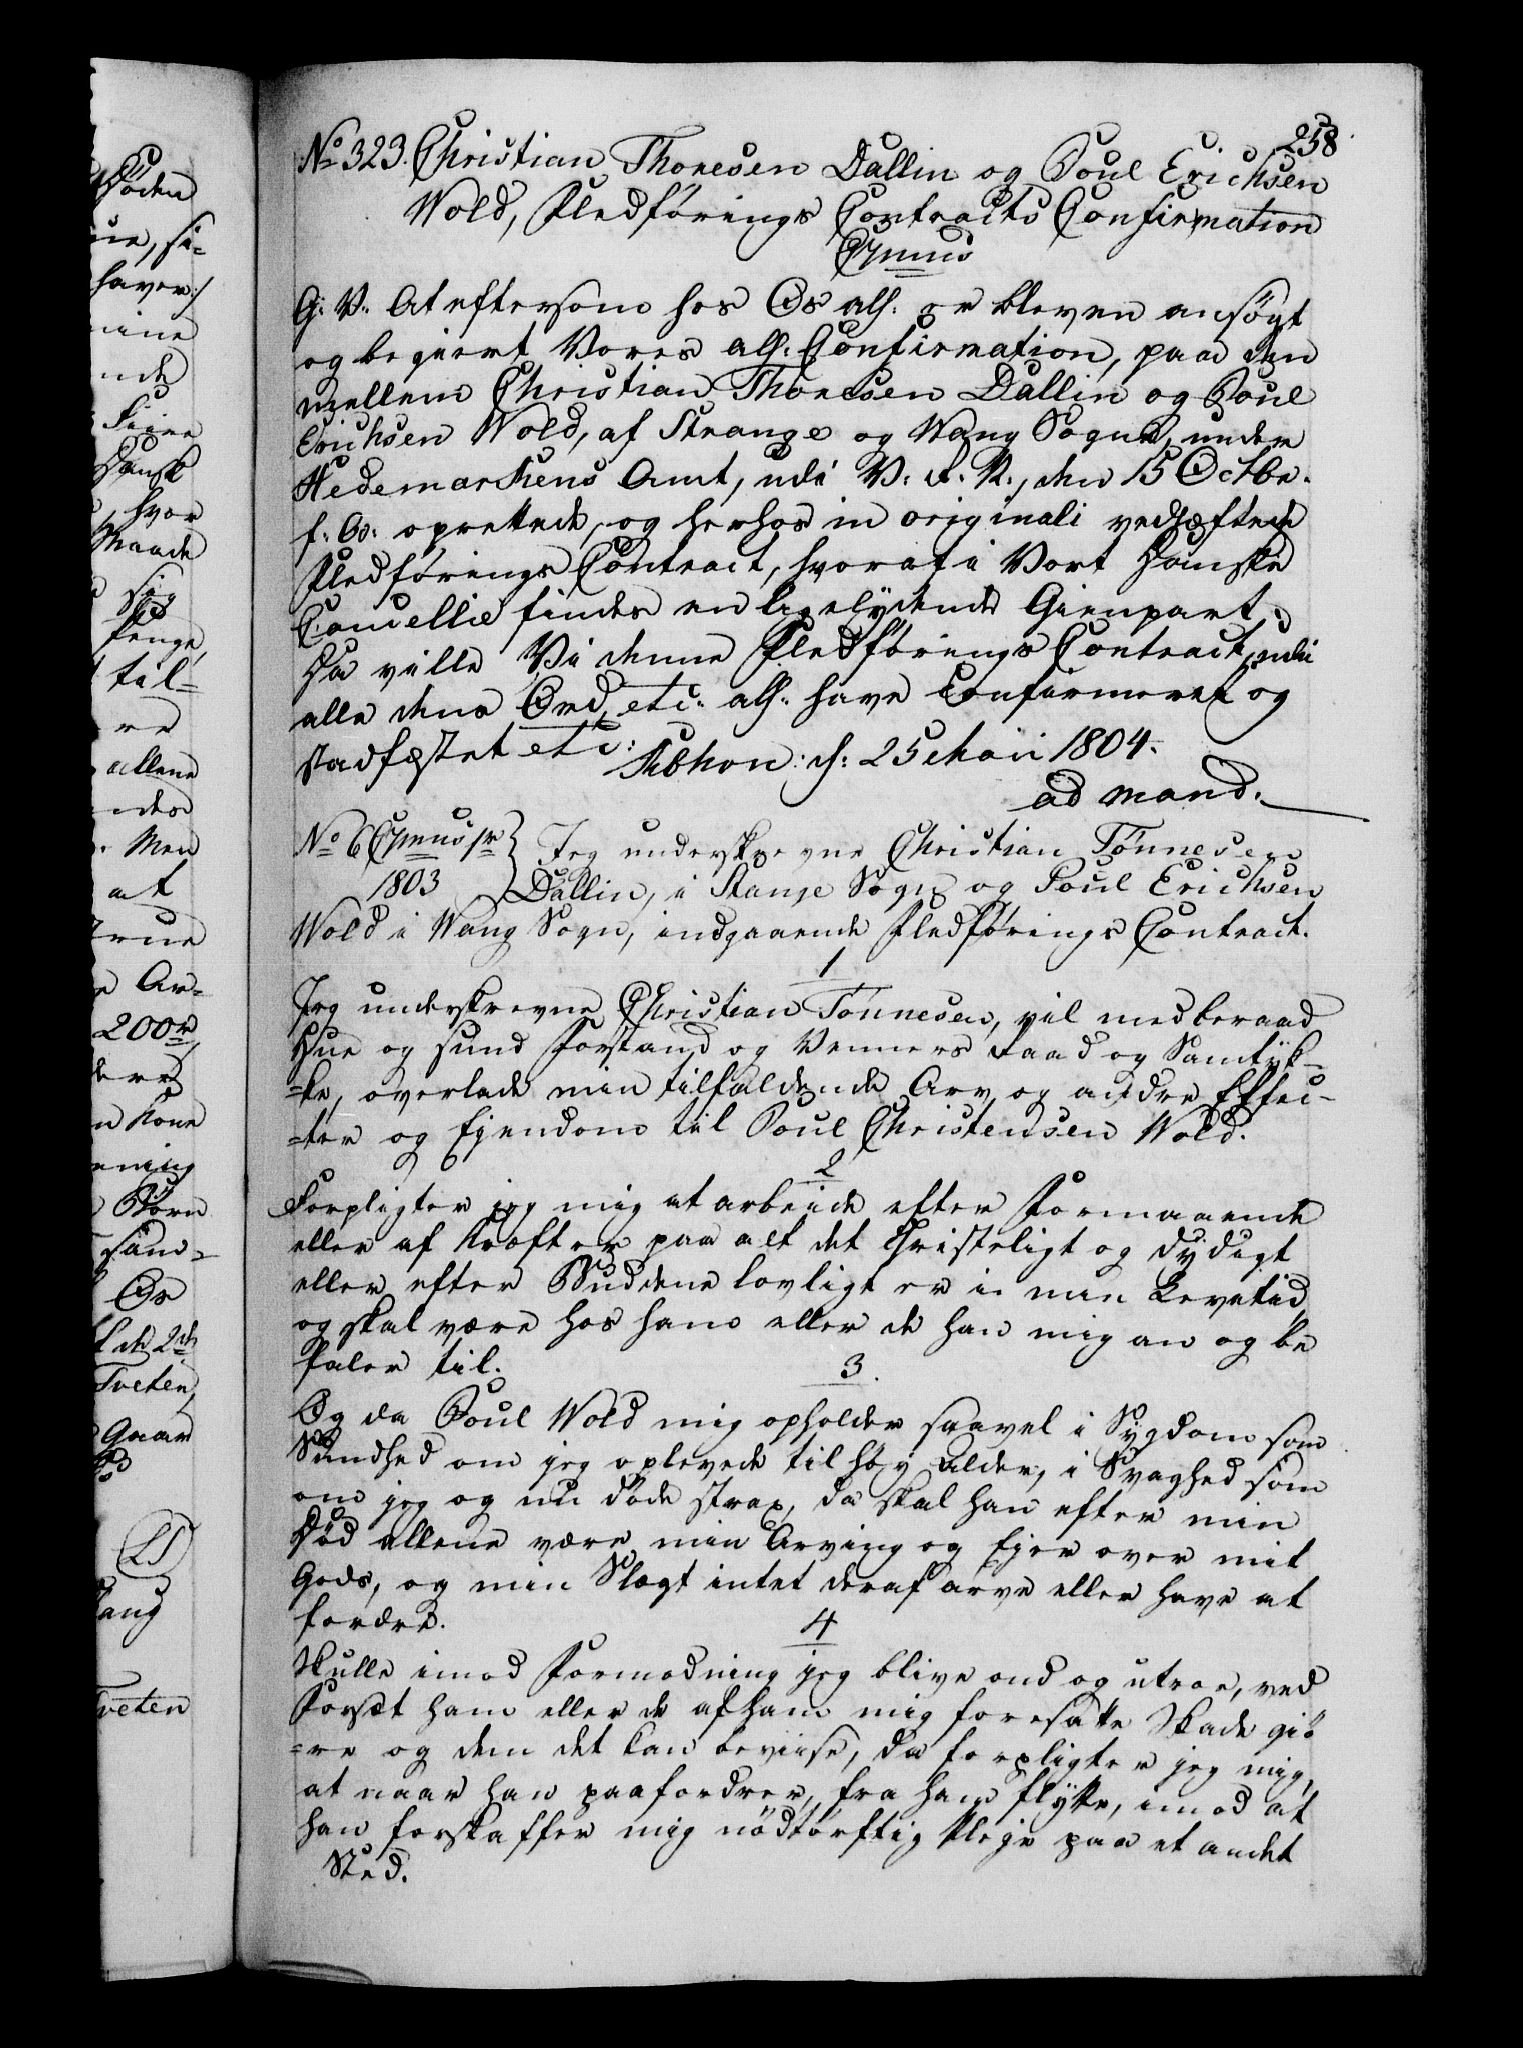 258
No 323. Christian Thonesen Dallin og Poul Erichsen
Wold, Fledførings Contracts Confirmation
Gratis
G: V: At eftersom hos Os alh: er bleven ansøgt
og begiert Vores alh: Confirmation, paa den
mellem Christian Thonesen Dallin og Poul
Erichsen Wold, af Strange og Wang Sogne, under
Hedemarkens Amt, udi V: R: N:, den 15 Octbr.
f: A: oprettede, og herhos in originali vedhæftede
Fledførings Contract, hvoraf i Vort Danske
Cancellie findes en ligelydende Gienpart;
Da ville Vi denne Fledførings Contract, udi
alle dens Ord, etc: alh: have Confirmeret og
stadfæstet etc:
Kbhvn: d: 25 Maii 1804.
ad mand.
No 6
1803
Jeg underskrevne Christian Tønnesen
Dallin, i Stange Sogn og Poul Erichsen
Wold i Wang Sogn, indgaaende Fledførings Contract.
1
Jeg underskrevne Christian Tønnesen, vil med beraad
Hue og sund Forstand og Venners Raad og Samtyk-
=ke, overlade min tilfaldende Arv og andre Effec-
=ter og Ejendom til Poul Christensen Wold.
2
Forpligter jeg mig at arbeide efter Formaaende
eller af Kræfter paa alt det Christeligt og dydigt
eller efter Buddene lovligt er i min Levetid,
og skal være hos ham eller de han mig an og be
faler til.
3.
Og da Poul Wold mig opholder saavel i Sygdom som
Sundhed om jeg oplevede til høy Alder, i Svaghed som
om jeg og nu døde strax, da skal han efter min
Død allene være min Arving og Ejer over mit
Gods, og min Slægt intet deraf arve eller have at
fordre.
4
Skulle imod Formodning jeg blive ond og utroe, ved
Forsæt ham eller de af ham mig foresatte Skade giö
=re og dem det kan beviise, da forpligter jeg mig,
at naar han paafordrer, fra ham flytte, imod at
han forskaffer mig nödtörftig Pleje paa et andet
Sted.